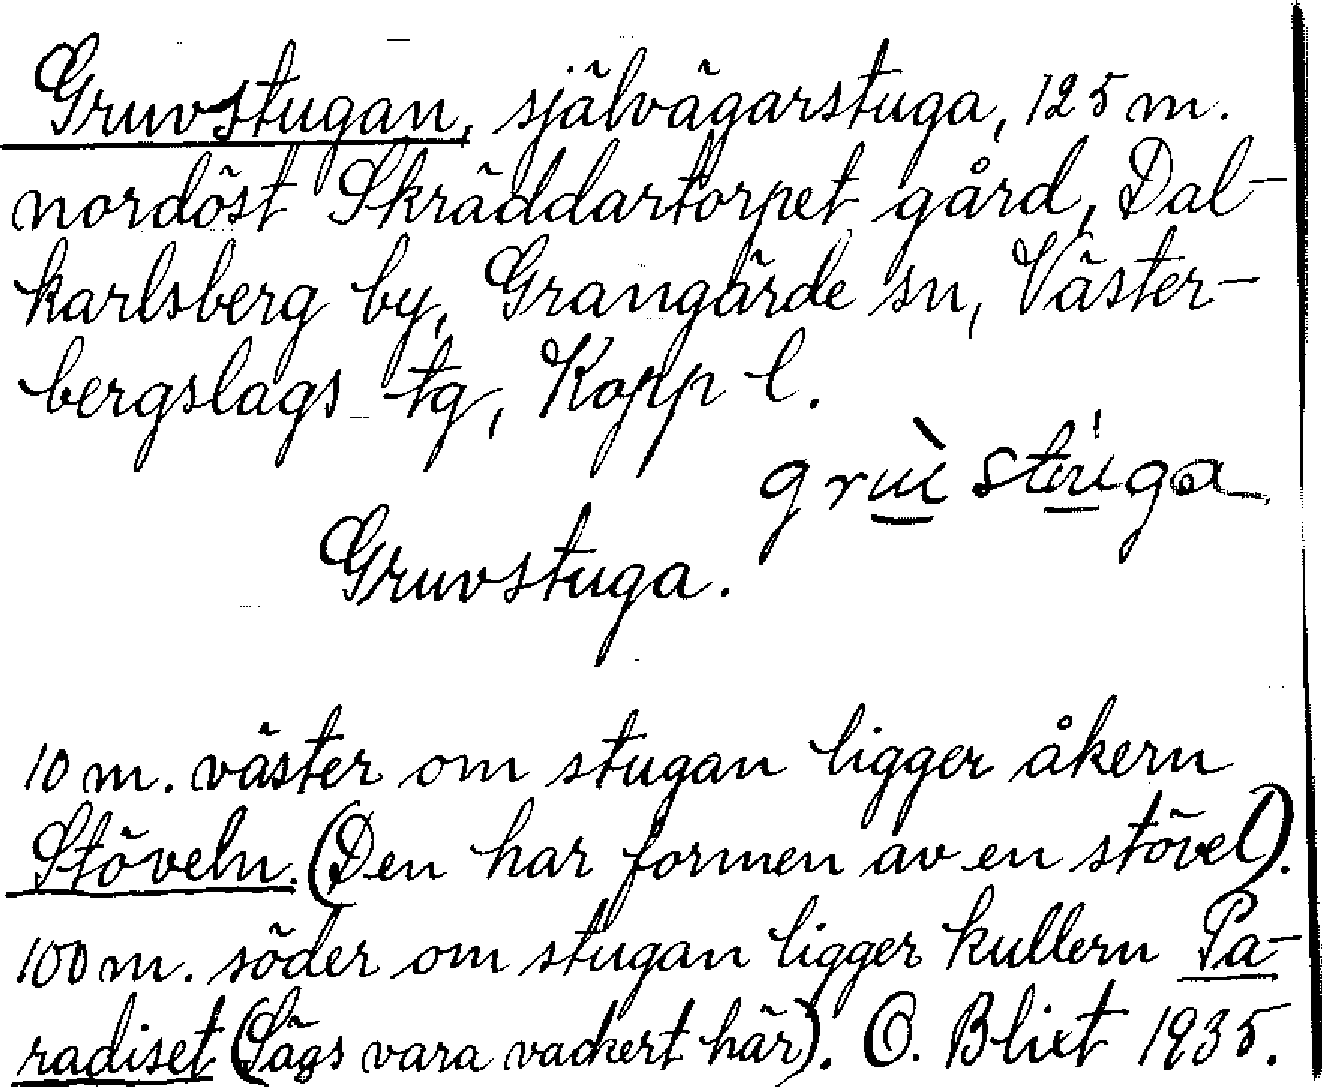 Gruvstugan, självägarstuga, 125 m.
nordöst Skräddartorpet gård, Dal-
karlsberg by, Grangärde sn, Väster-
bergslags tg, Kopp l.
grù stúga
Gruvstuga.
10 m. väster om stugan ligger åkern
Stöveln. (Den har formen av en stövel).
100 m. söder om stugan ligger kullern Pa-
radiset (Sägs vara vackert här). O. Blixt 1935.